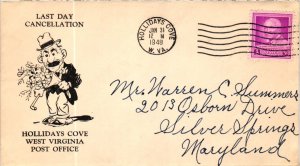 LAST DAY
CANCELLATION
HOLLIDAYS COVE
WEST VIRGINIA
POST OFFICE
HOLLIDAYS COVE
JAN 31
12 M
1949
W. VA.
Mrs. Warren C. Summers
2013 Osborn Drive
Silver Springs
Maryland